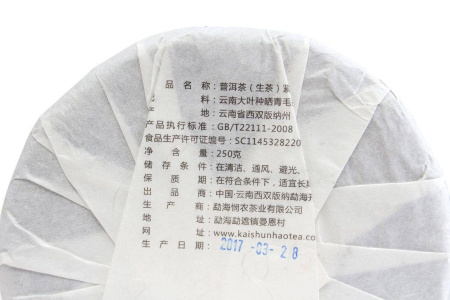 品 名 称：普洱茶（生茶）
料：云南大叶种晒青毛
产 地：云南省西双版纳州
产品执行标准：GB/T22111-2008
食品生产许可证编号：SC1145328220
净 含 量：250克
储 存 条 件：在清洁、通风、避光、
保 质 期：在符合条件下，适宜长
出 品 商：中国·云南西双版纳勐海
生 产 商：勐海悯农茶业有限公司
地 址：勐海勐遮镇曼恩村
网 址：www.kaishunhaotea.com
生 产 日 期：2017 -03- 28